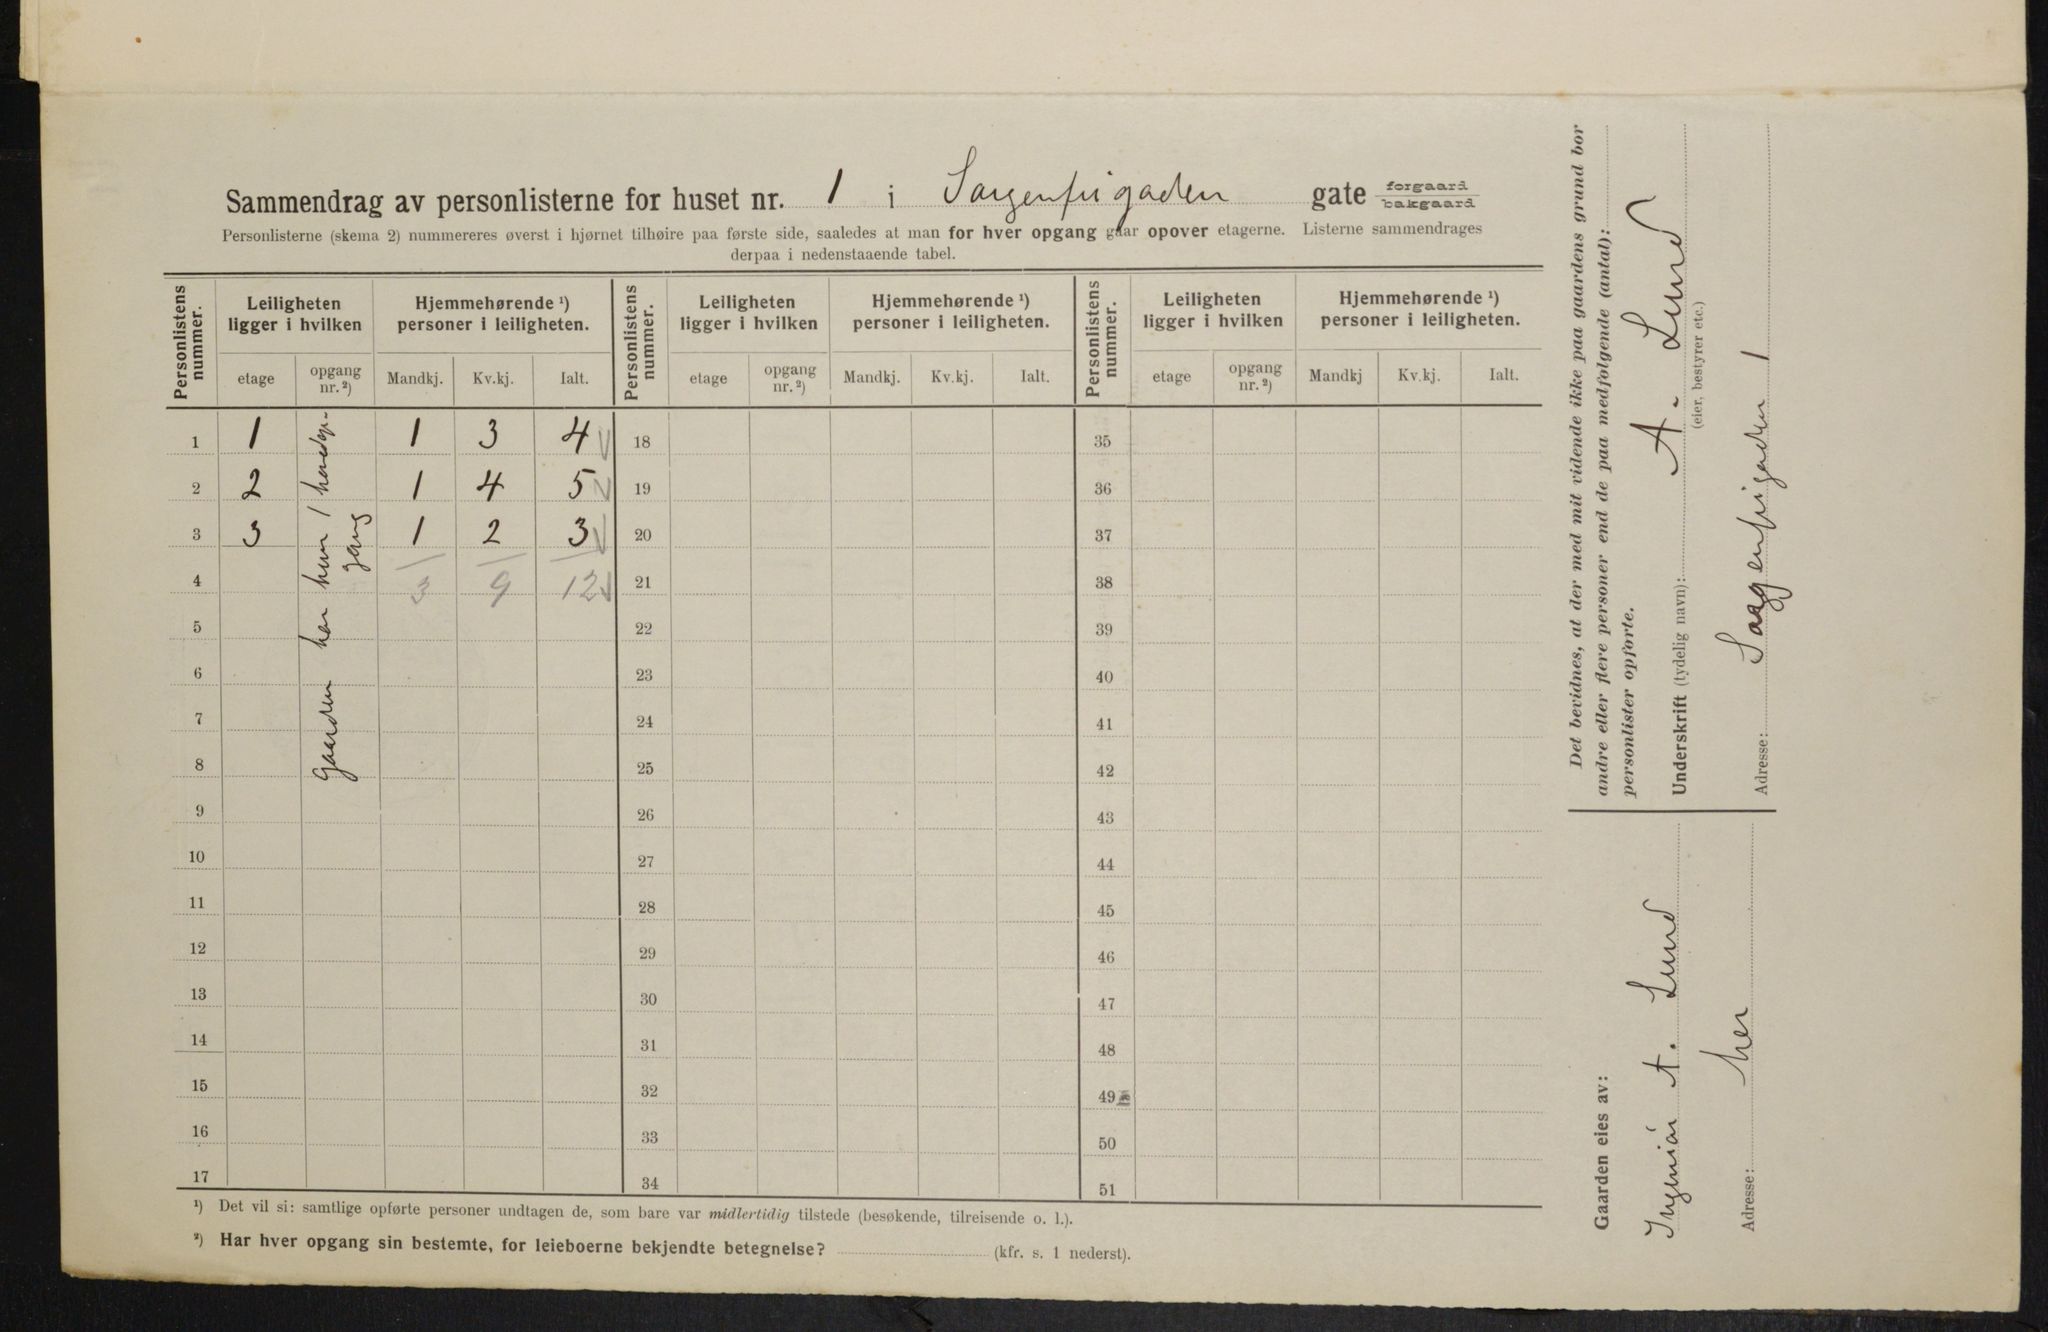 Sammendrag av personlisterne for huset nr. 1 i Sorgenfrigaden gate forgaard bakgaard
Personlisterne (skema 2) nummereres øverst i hjørnet tilhøire paa første side, saaledes at man for hver opgang gaar opover etagerne. Listerne sammendrages
derpaa i nedenstaaende tabel.
Personlistens nummer. Leiligheten ligger i hvilken Hjemmehørende ¹) personer i leiligheten. Personlistens nummer. Leiligheten ligger i hvilken Hjemmehørende ¹) personer i leiligheten. Personlistens nummer. Leiligheten ligger i hvilken Hjemmehørende ¹) personer i leiligheten.
etage opgang nr. ²) Mandkj. Kv.kj. Ialt. etage opgang nr. ²) Mandkj. Kv.kj. Ialt. etage opgang nr. ²) Mandkj Kv.kj. Ialt.
1 1 1 3 4 18 35
2 2 1 4 5 19 36
3 3 1 2 3 20 37
4 3 9 12 21 38
5 22 39
6 23 40
7 24 41
8 25 42
9 26 43
10 27 44
11 28 45
12 29 46
13 30 47
14 31 48
15 32 49
16 33 50
17 34 51
Gaarden har kun 1 hovedop-
gang
¹) Det vil si: samtlige opførte personer undtagen de, som bare var midlertidig tilstede (besøkende, tilreisende o. l.).
²) Har hver opgang sin bestemte, for leieboerne bekjendte betegnelse? (kfr. s. 1 nederst).
Det bevidnes, at der med mit vidende ikke paa gaardens grund bor
andre eller flere personer end de paa medfølgende (antal):
personlister opførte.
Underskrift (tydelig navn): A. Lund
(eier, bestyrer etc.)
Adresse: Sorgenfrigaden 1
Gaarden eies av:
Ingeniør A. Lund
Adresse: her